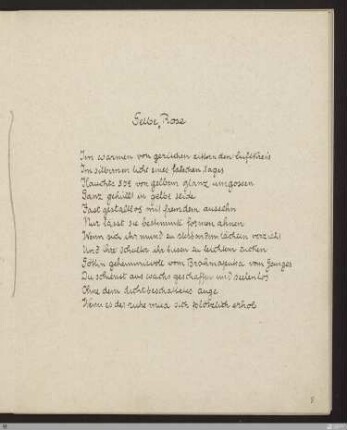 Gelbe Rose
Im warmen von gerüchen zitternden luftkreis
Im silbernen licht eines falschen tages
Hauchte sie von gelbem glanz umgossen
Ganz gehüllt in gelbe seide
Fast gestaltlos mit fremdem aussehn
Nur lässt sie bestimmte formen ahnen
Wenn sich ihr mund zu sterbendem lächeln verzieht
Und ihre schulter ihr busen zu leichtem zucken
Göttin geheimnisvolle vom Brahmaputra vom Ganges
Du schienst aus wachs geschaffen und seelenlos
Ohne dein dichtbeschattetes auge
Wenn es der ruhe müd sich plötzlich erhob